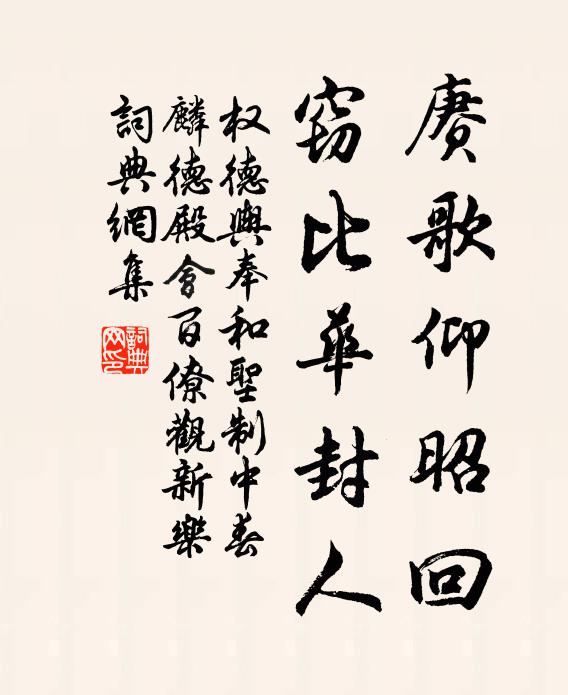 賡歌仰昭回
窃比華封人
权德輿奉和聖制中春
麟德殿會百僚觀新樂
詞典網集
詞典
网印